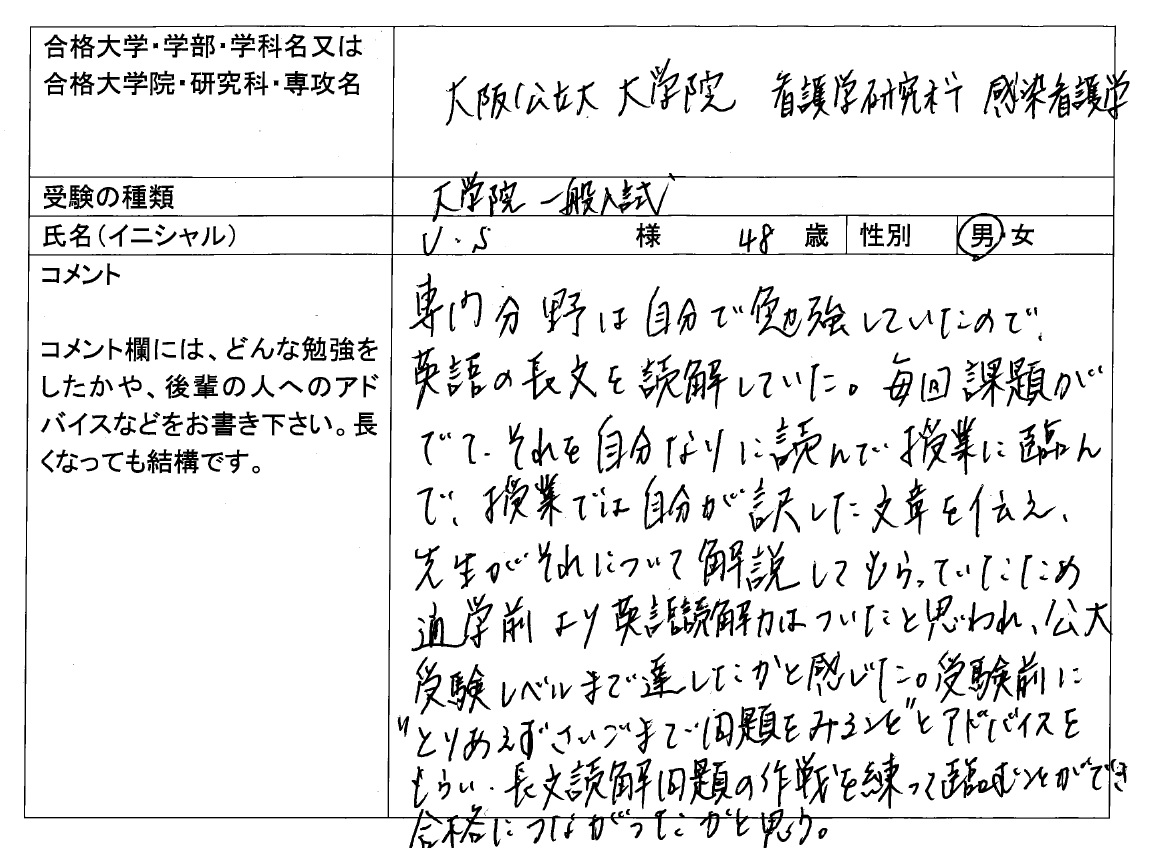 合格大学・学部・学科名又は
合格大学院・研究科・専攻名
大阪公立大 大学院 看護学研究科 感染看護学
受験の種類
大学院 一般入試
氏名（イニシャル）
U.S 様 48 歳 性別 男・女
コメント
コメント欄には、どんな勉強を
したかや、後輩の人へのアド
バイスなどをお書き下さい。長
くなっても結構です。
専門分野は自分で勉強していたので、
英語の長文を読解していた。毎回課題が
でて、それを自分なりに読んで授業に臨ん
で、授業では自分が訳した文章を伝え、
先生がそれについて解説してもらっていたため
通学前より英語読解力はついたと思われ、公大
受験レベルまで達したかと感じた。受験前に
"とりあえずさいごまで問題をみること"とアドバイスを
もらい、長文読解問題の作戦を練って臨むことができ
合格につながったかと思う。